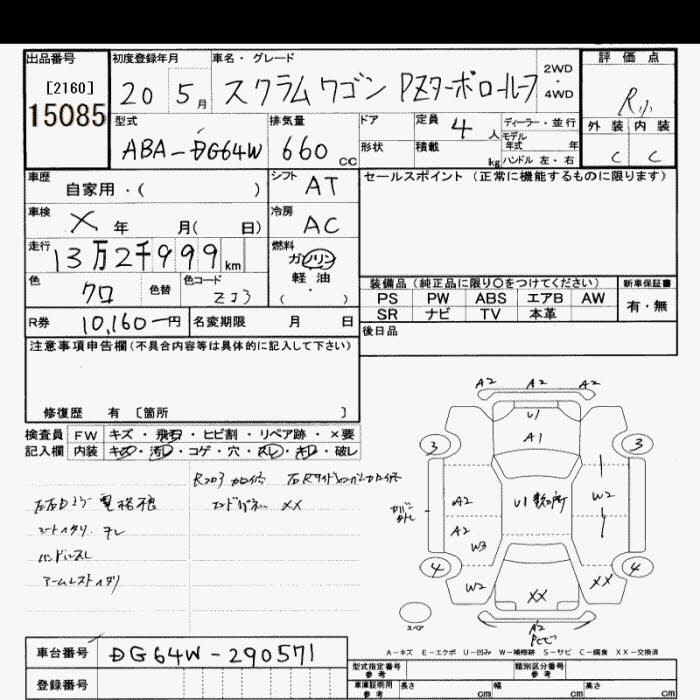 出品番号 初度登録年月 車名・グレード 2WD・4WD 評価点
[2160] 20 5月 スクラムワゴン PZターボ
15085
型式 排気量 ドア 定員 4人 ディーラー・並行 外装 内装
モデル年式 年
ABA-DG64W 660cc 形状 積載 kg ハンドル 左・右 C C
車歴 自家用・( ) シフト AT セールスポイント(正常に機能するものに限ります)
車検 X 年 月( 日) 冷房 AC
走行 13万2千999km 燃料 ガソリン
軽油
( )
色 クロ 色替 色コード ZJ3
装備品(純正品に限り○をつけてください) 新車保証書
PS PW ABS エアB AW 有・無
SR ナビ TV 本革
R券 10,160-円 名変期限 月 日
後日品
注意事項申告欄(不具合内容等は具体的に記入して下さい)
修復歴 有 [箇所 ]
検査員 FW キズ・飛石・ヒビ割・リペア跡・×要
記入欄 内装 キズ・汚レ・コゲ・穴・スレ・キレ・破レ
A2 A2 A2
U1
A1
3 3
A2 W2
A2
W3
4 4
W2 XX XX
スペア
A2
A-キズ E-エクボ U-凹み W-補修跡 S-サビ C-腐食 XX-交換済
車台番号 DG64W-290571
登録番号
型式指定番号 参考 類別区分番号 参考
車庫証明用 参考 長さ cm 幅 cm 高さ cm